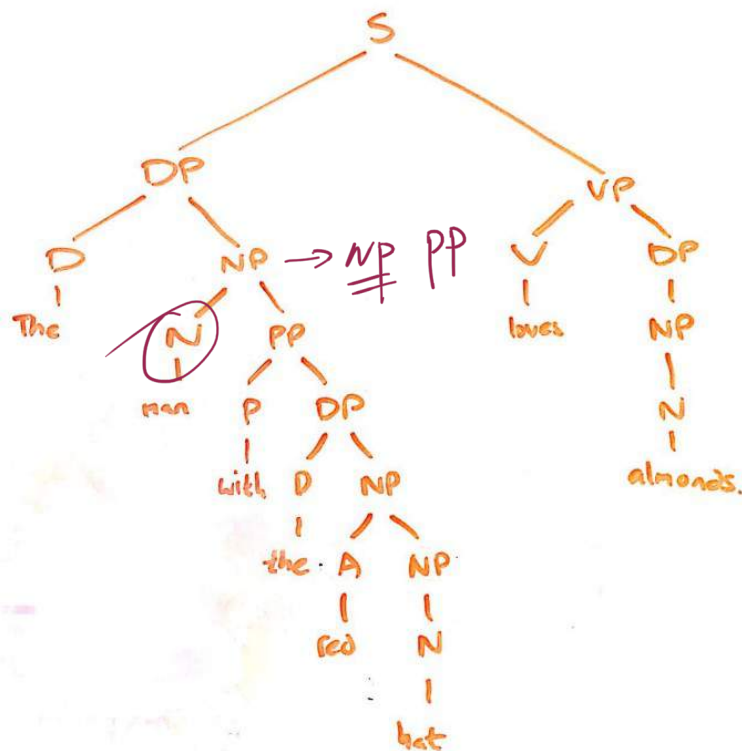 S
DP VP
D NP → NP PP V DP
The N PP loves NP
man P DP N
with D NP almonds.
the A NP
red N
hat